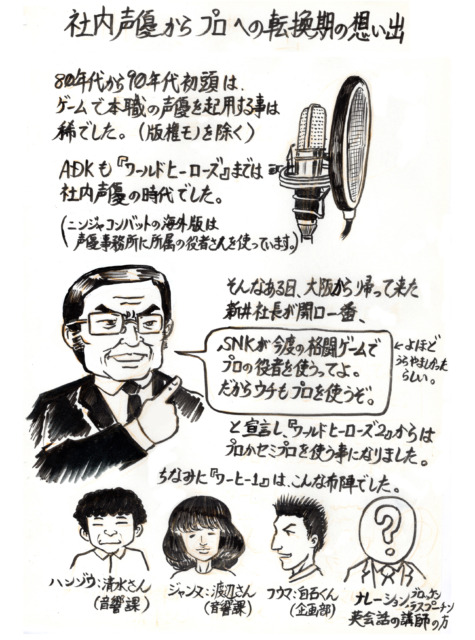 社内声優からプロへの転換期の想い出
80年代から90年代初頭は、
ゲームで本職の声優を起用する事は
稀でした。(版権モノを除く)
ADKも『ワールドヒーローズ』までは
社内声優の時代でした。
(ニンジャコンバットの海外版は
声優事務所に所属の役者さんを使っています。)
そんなある日、大阪から帰って来た
新井社長が開口一番、
SNKが今度の格闘ゲームで
プロの役者を使うってよ。
だからウチもプロを使うぞ。
←よほど
うらやましかった
らしい。
と宣言し『ワールドヒーローズ2』からは
プロかセミプロを使う事になりました。
ちなみに『ワーヒー1』は、こんな布陣でした。
ハンゾウ:清水さん
(音響課)
ジャンヌ:渡辺さん
(音響課)
フウマ:白石くん
(企画部)
?
ナレーション、ブロッケン
、ラスプーチン
英会話の講師の方